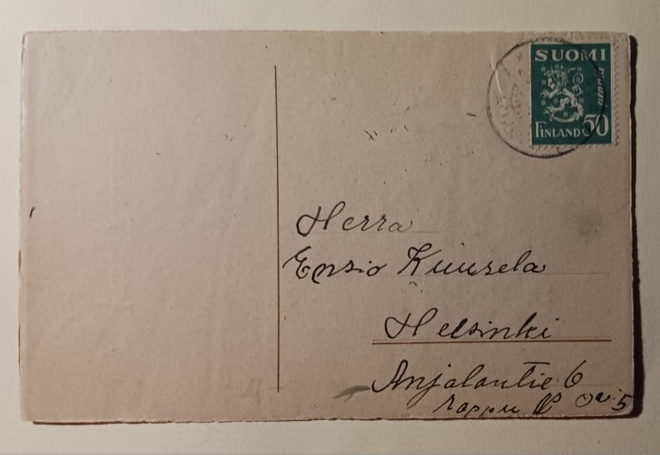 SUOMI
FINLAND 50
Herra
Ensio Kuusela
Helsinki
Anjalantie 6
rappu ovi 5